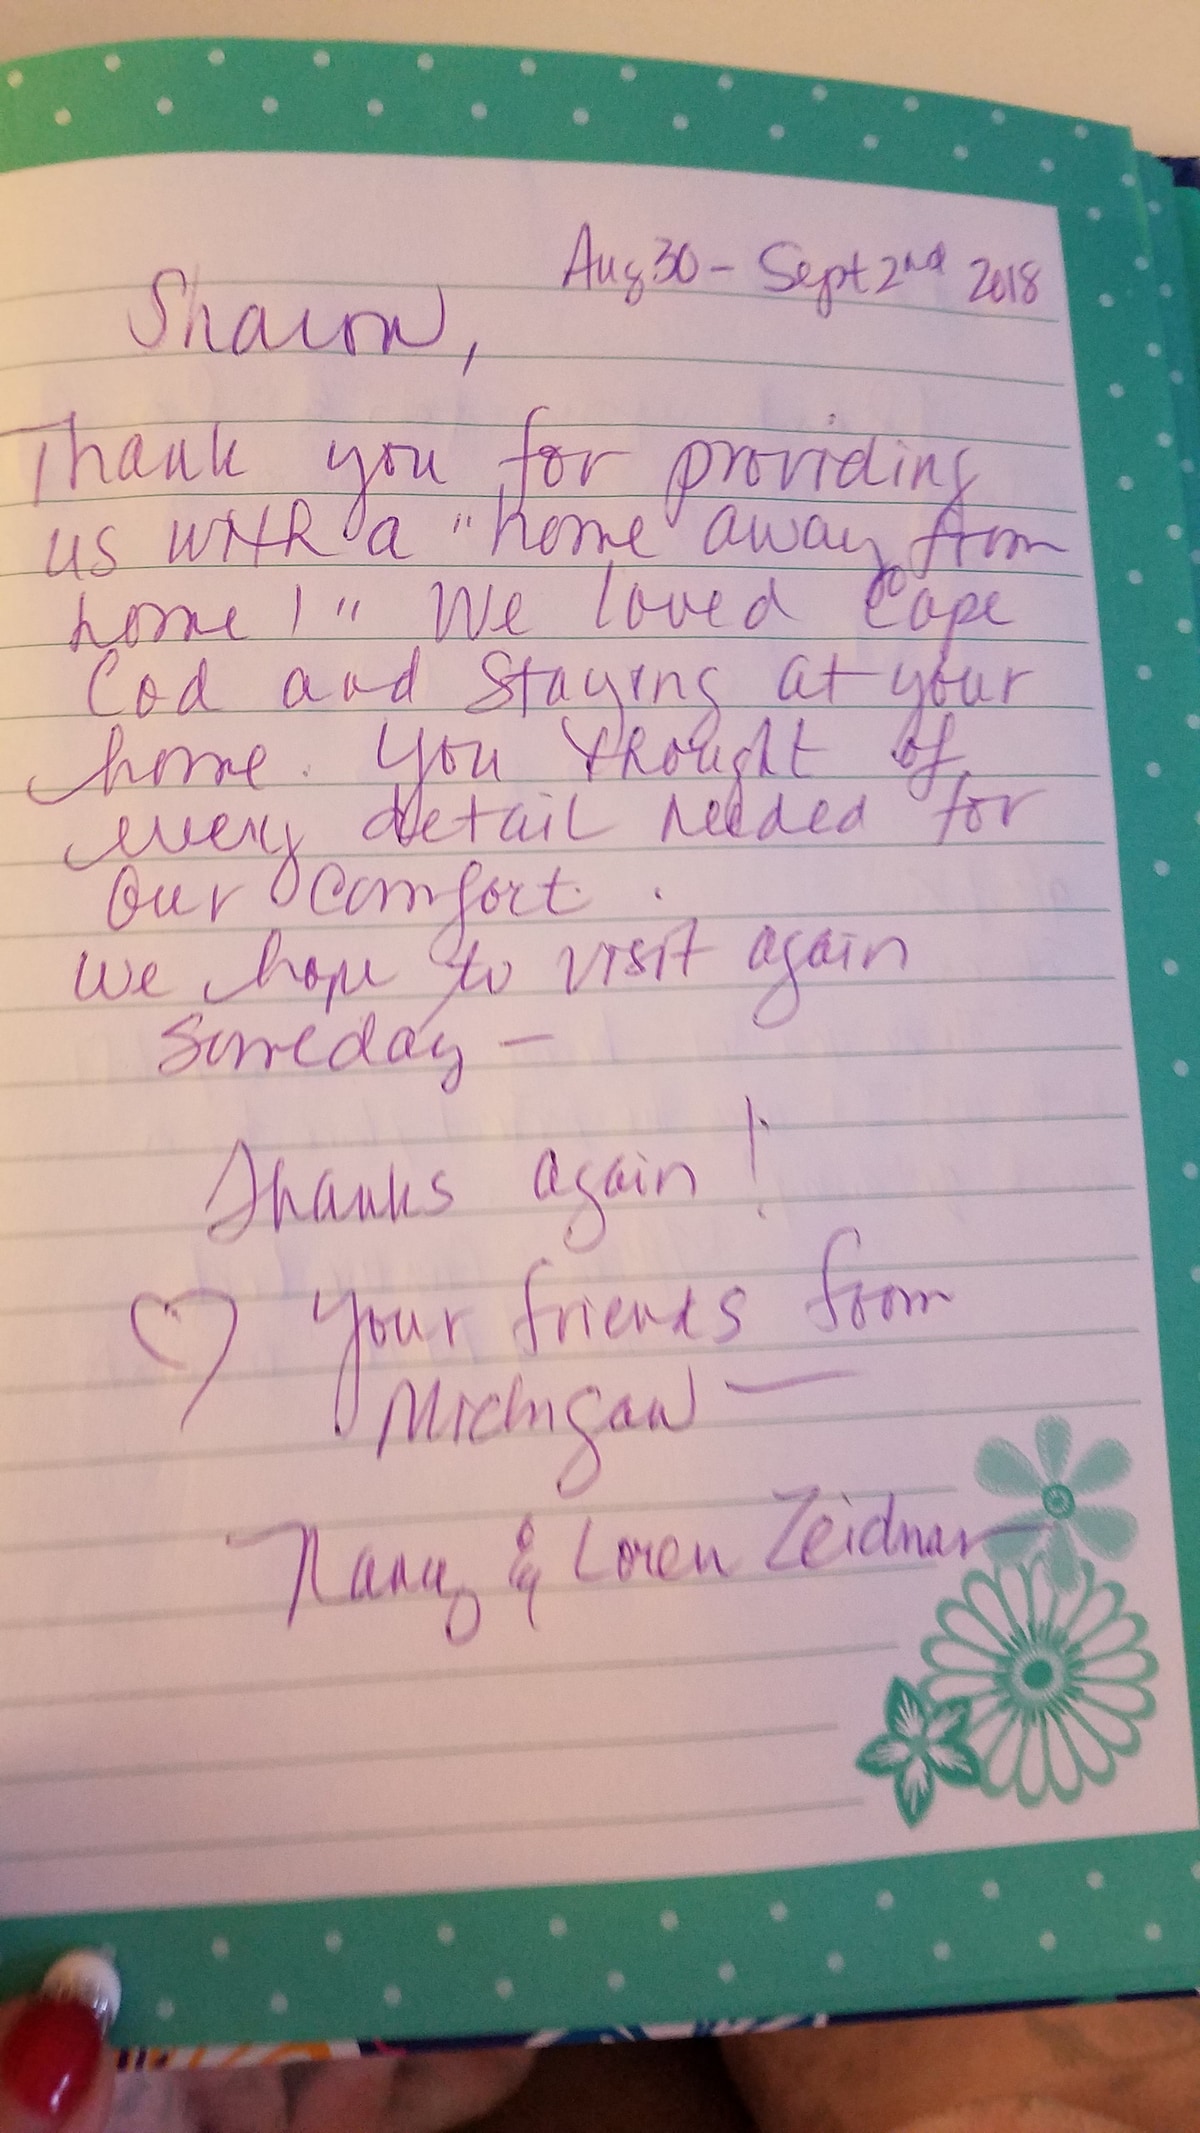 Aug 30 - Sept 2nd 2018
Sharon,
Thank you for providing
us with a "home away from
home!" We loved Cape
Cod and staying at your
home. You thought of
every detail needed for
our comfort.
We hope to visit again
Someday -
Thanks again!
♡ Your friends from
Michigan -
& Loren Zeidner